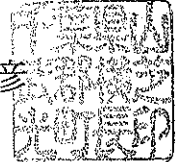 彦
千葉県山
武郡横芝
光町長印